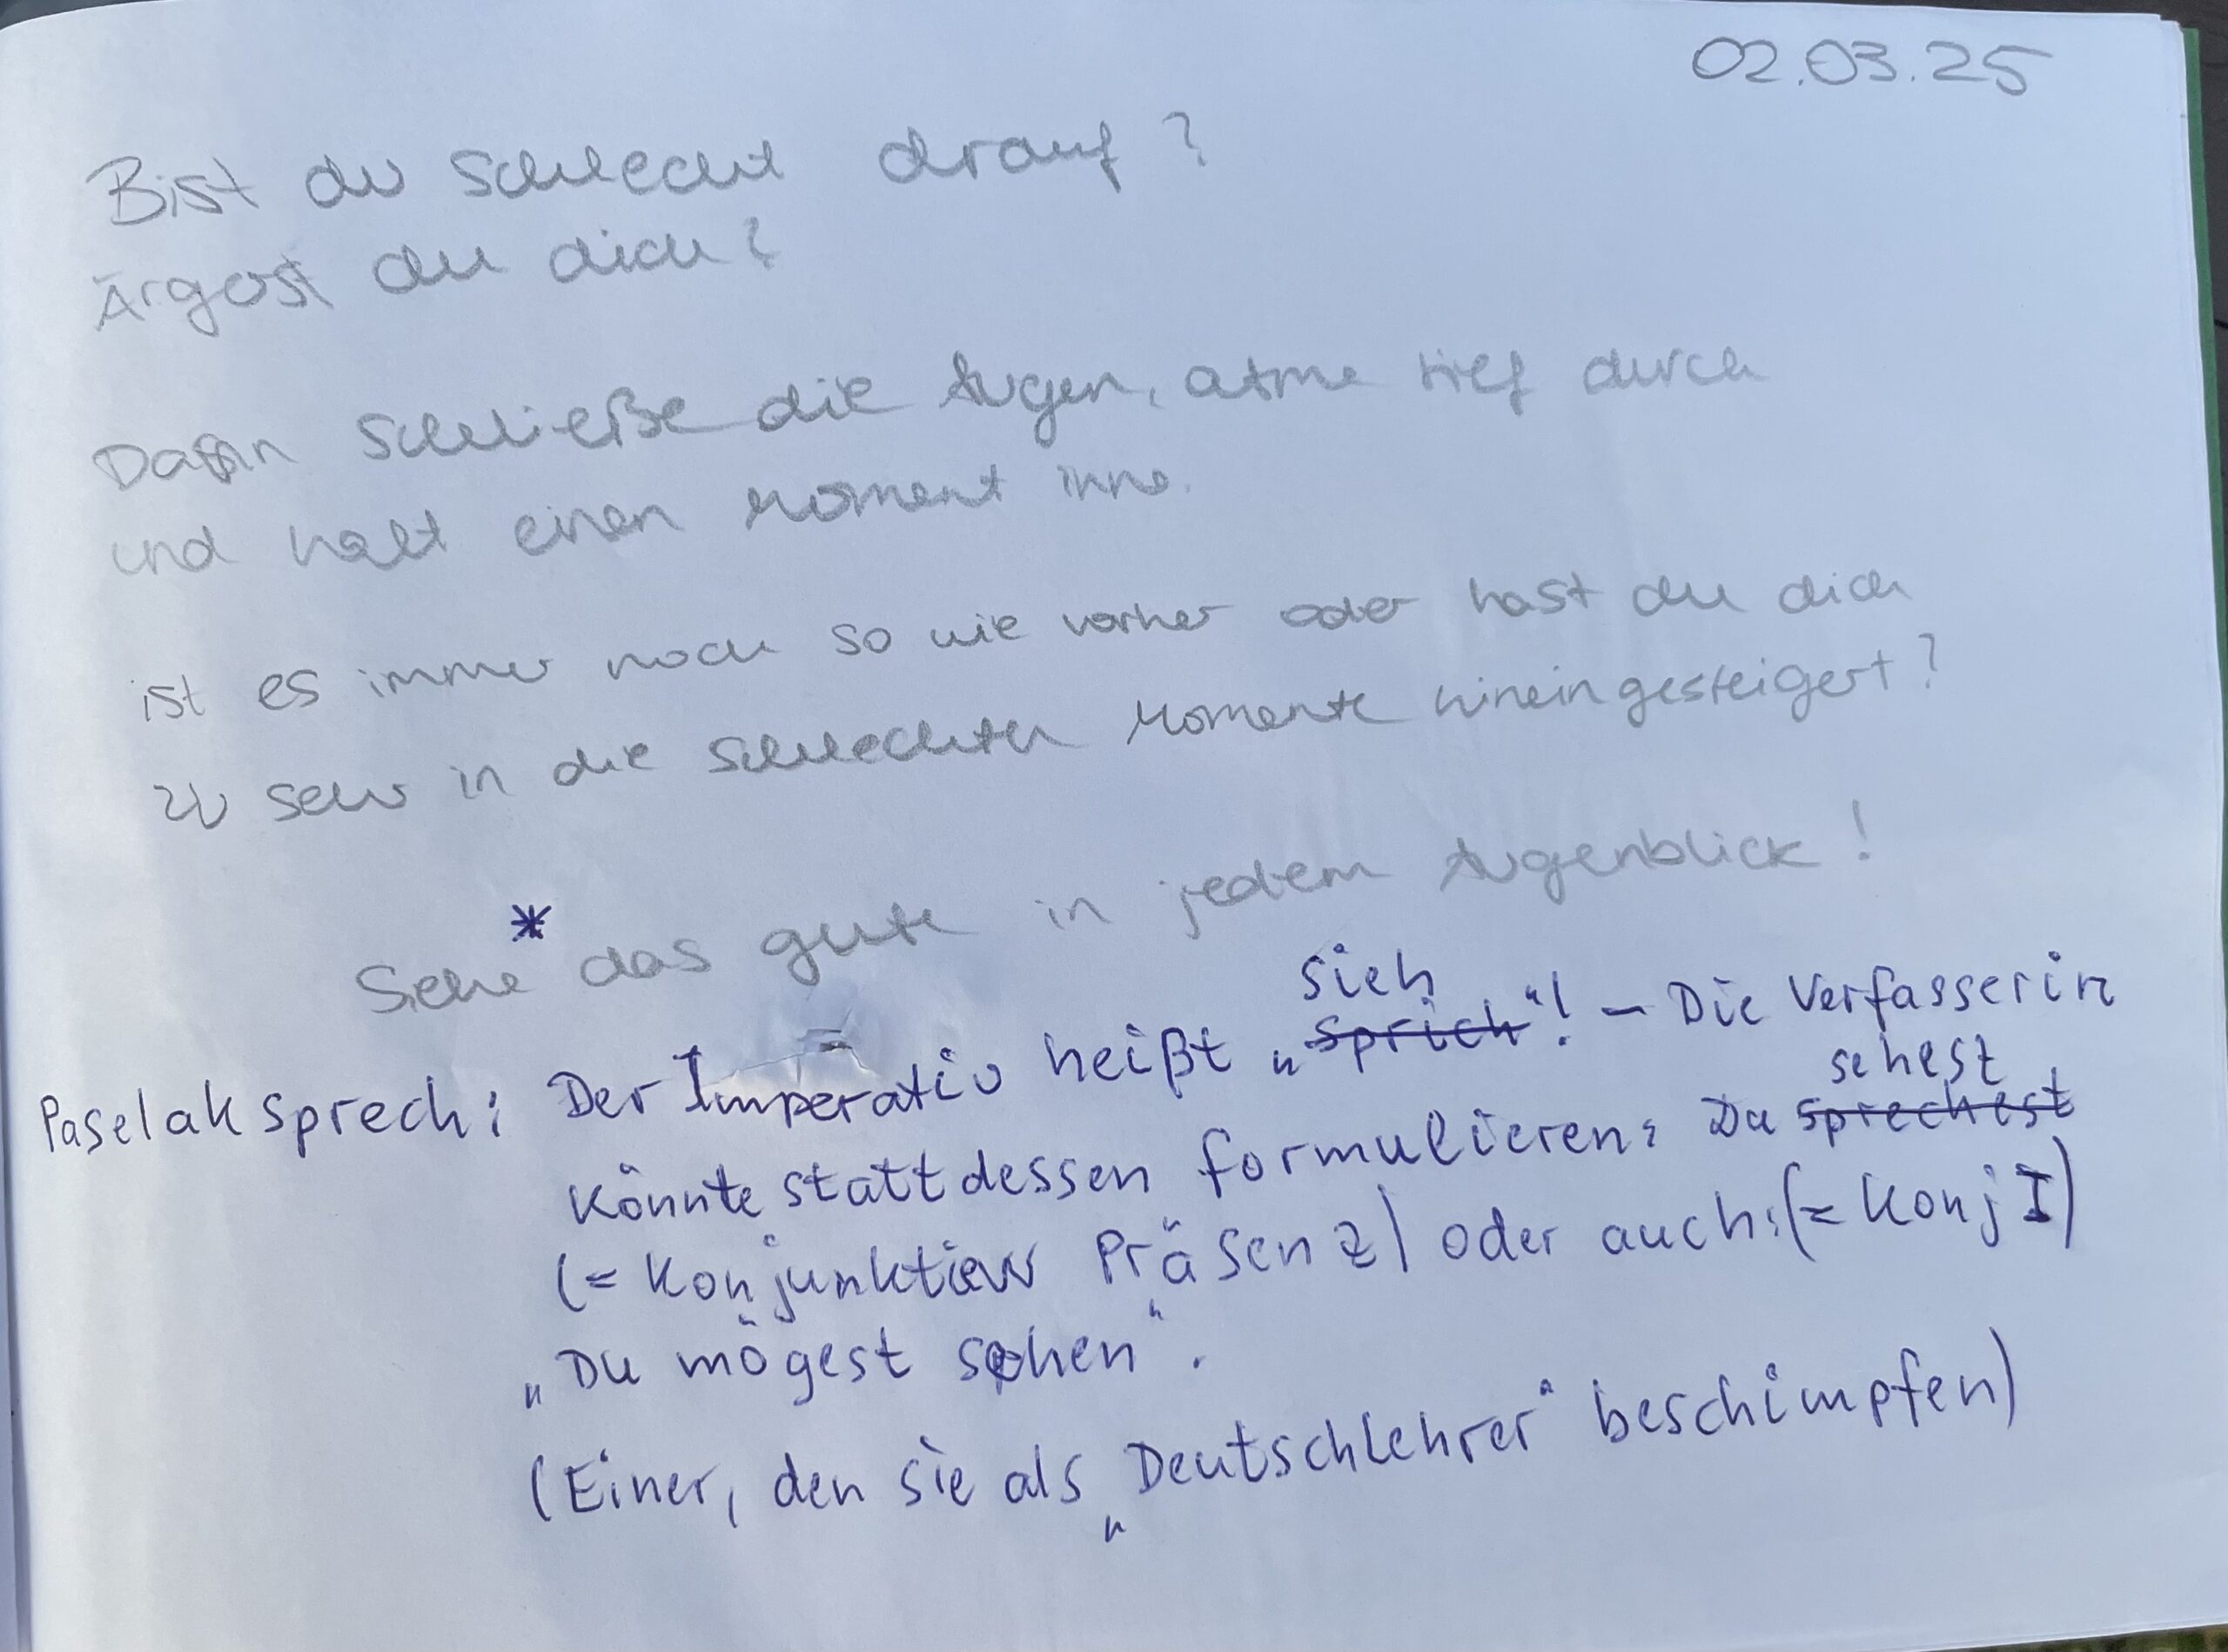 02.03.25
Bist du schlecht drauf?
Ärgerst du dich?
Dann schließe die Augen, atme tief durch
und halt einen Moment inne.
ist es immer noch so wie vorher oder hast du dich
zu sehr in die schlechten Momente hineingesteigert?
*
Sehe das gute in jedem Augenblick!
sieh
Paselak sprech: Der Imperativ heißt „sprich"! – Die Verfasserin
sehest
könnte stattdessen formulieren: Du sprechest
(= Konjunktiv Präsenz) oder auch: (= Konj I)
„Du mögest sehen".
(Einer, den sie als „Deutschlehrer" beschimpfen)